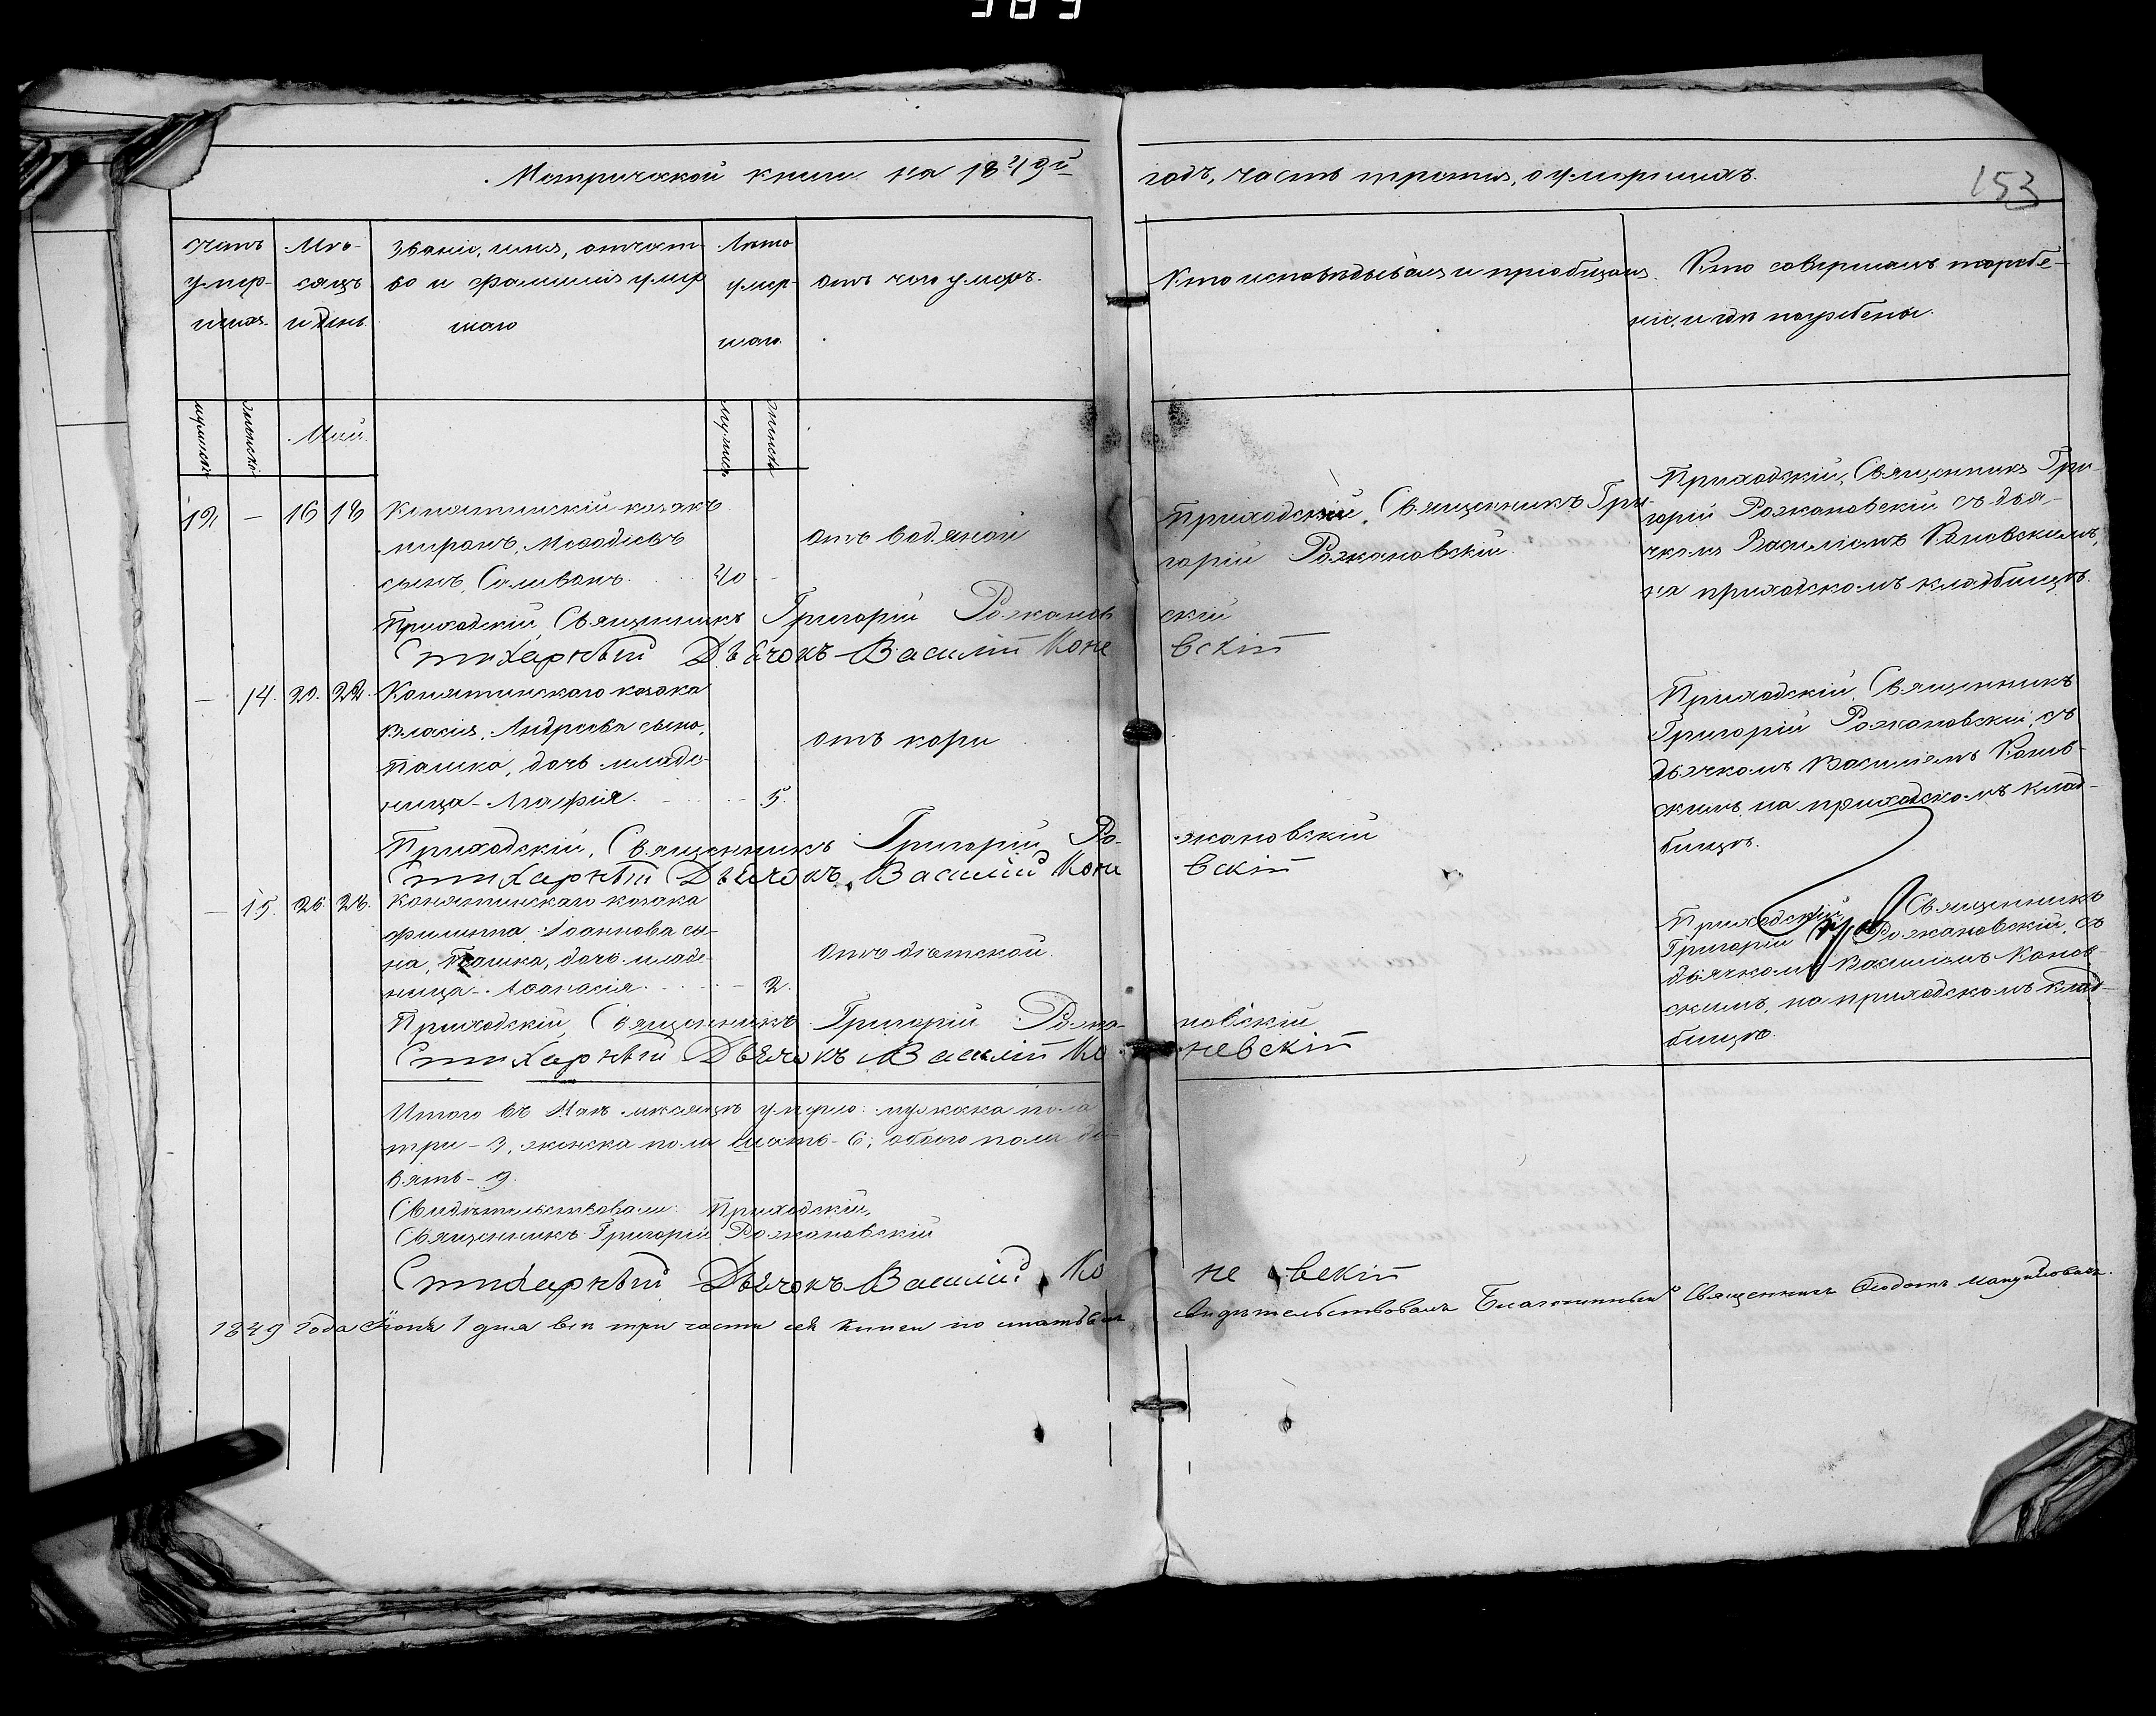 989
Метрической книги на 1849й годъ, часть третія, о умершихъ.
153
Счетъ умер-
шихъ.
Мѣ-
сяцъ
и день.
Званіе, имя, отчест-
во и фамилія умер
шаго
Лѣта
умер-
шаго.
Отъ чего умеръ.
Кто исповѣдывалъ и пріобщалъ.
Кто совершалъ погребе-
ніе, и гдѣ погребены.
мужеска
женска
Май.
мужеска
женска
12. — 16 18
Конятинскій козакъ
миронъ, Меѳодіевъ
сынъ, Селивонъ. 40 -
отъ водяной
Приходскій, Священникъ Гри-
горій Рожановскій.
Приходскій, Священникъ Гри-
горій Рожановскій съ дья-
чкомъ Василіемъ Коневскимъ,
на приходскомъ кладбищѣ.
Приходскій Священникъ Григорій Рожанов скій
Стихарный Дьячокъ Василій Коне вскій
— 14. 20. 22.
Конятинскаго козака
Власія, Андреева сына,
Пашка, дочь младе-
ница - Агафія. - 5.
отъ кори
Приходскій Священникъ
Григорій Рожановскій, съ
дьячкомъ Василіемъ Конев-
скимъ, на приходскомъ клад-
бищѣ.
Приходскій, Священникъ Григорій Ро- жановскій
Стихарный Дьячокъ Василій Коне вскій
— 15. 26. 28.
Конятинскаго козака
Филиппа Іоаннова сы-
на, Пашка, дочь младе-
ница - Аѳанасія. - 2.
отъ дѣтской.
Приходскій Священникъ
Григорій Рожановскій, съ
дьячкомъ Василіемъ Конев-
скимъ, на приходскомъ клад-
бищѣ.
Приходскій Священникъ Григорій Рожа- новскій
Стихарный Дьячокъ Василій Ко невскій
Итого въ Маѣ мѣсяцѣ умерло: мужеска пола
три - 3, женска пола шесть - 6; обоего пола де-
вять - 9.
Свидѣтельствовали: Приходскій,
Священникъ Григорій Рожановскій
Стихарный Дьячокъ Василій Ко не вскій
1849 года Іюня 1 дня всѣ три части сей книги по статьямъ свидѣтельствовалъ Благочинный Священникъ Ѳеодотъ